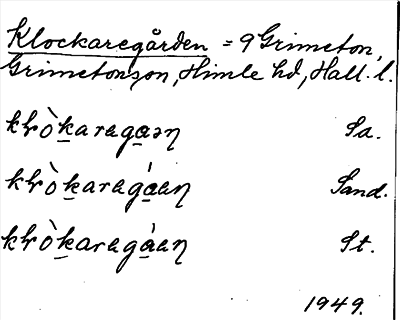 Klockaregården = 9 Grimeton,
Grimetons sn, Himle hd, Hall. l.
kḷò̱karaga̱əŋ Sa.
kḷò̱karagá̱aŋ Sand.
kḷò̱karagá̱aŋ St.
1949.